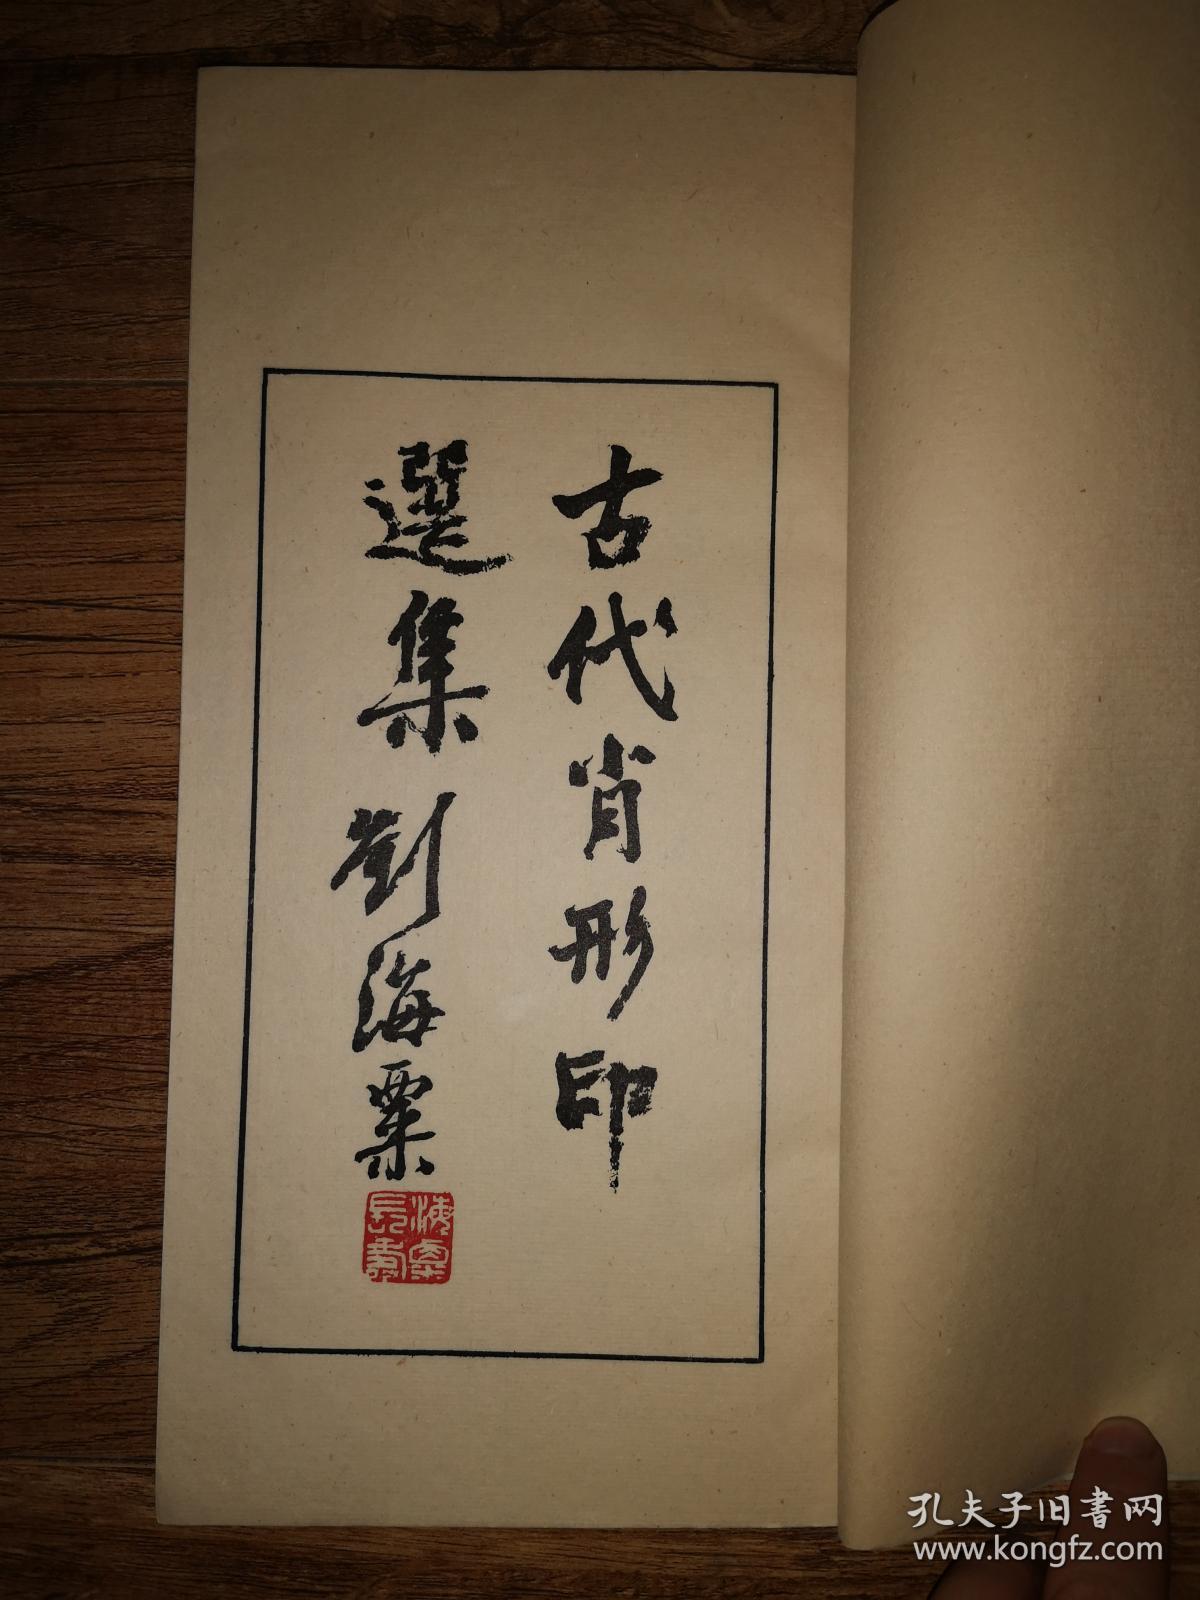 古代肖形印
選集 劉海粟
海粟
長壽
孔夫子旧書网
www.kongfz.com